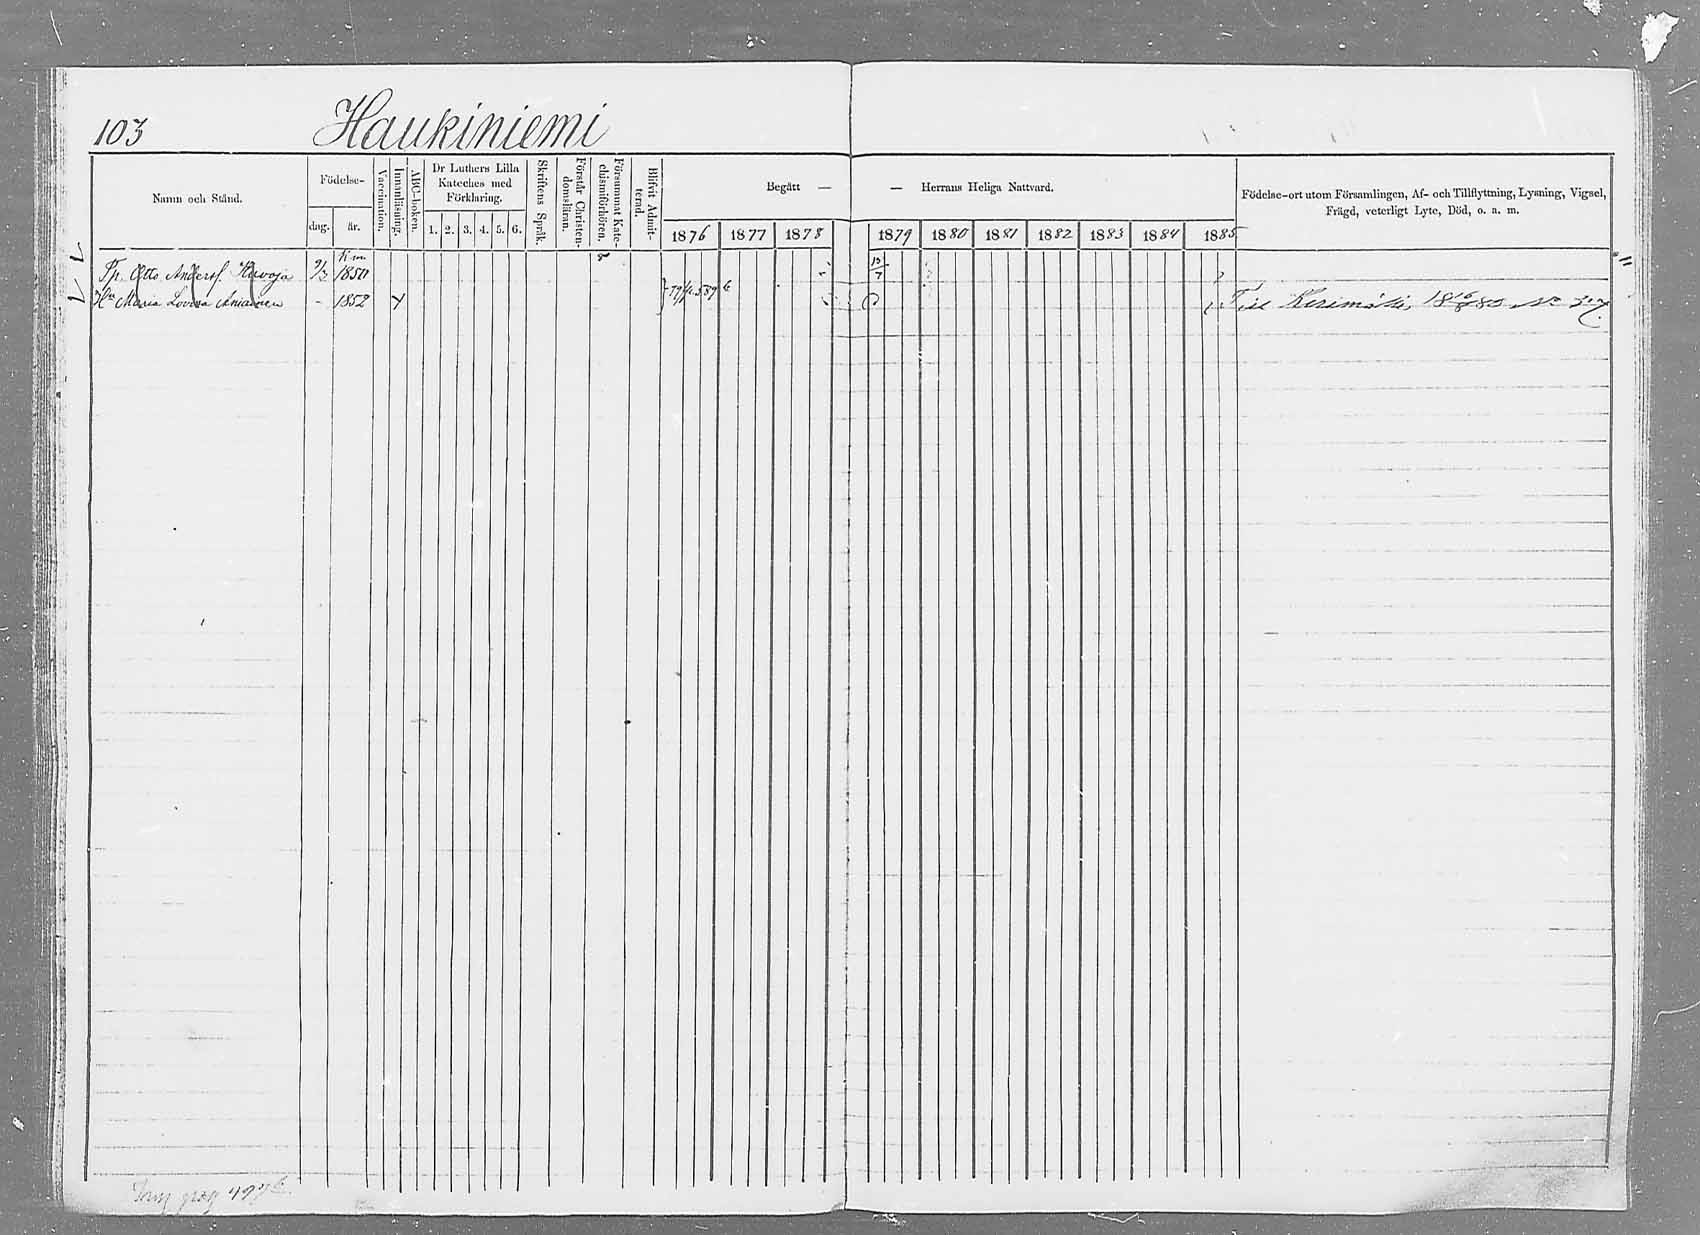 103 Haukiniemi
Namn och Stånd.
Födelse-
dag. år.
Vaccination.
Innanläsning.
ABC-boken.
Dr Luthers Lilla
Kateches med
Förklaring.
1. 2. 3. 4. 5. 6.
Skriftens Språk.
Förstår Christen-
domsläran.
Försummat Kate-
chismiförhören.
Blifvit Admit-
terad.
Begått — — Herrans Heliga Nattvard.
1876 1877 1878 1879 1880 1881 1882 1883 1884 1885
Födelse-ort utom Församlingen, Af- och Tillflyttning, Lysning, Vigsel,
Frägd, veterligt Lyte, Död, o. a. m.
Otto Andersf. 1850
Maria Lovisa - 1852
Till Kerimäki